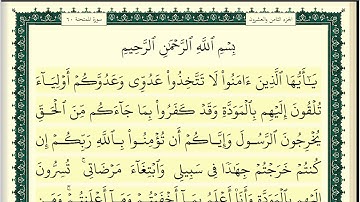 الجزء الثامن والعشرون سورة الممتحنة ٦٠
بِسْمِ ٱللَّهِ ٱلرَّحْمَٰنِ ٱلرَّحِيمِ
يَٰٓأَيُّهَا ٱلَّذِينَ ءَامَنُوا۟ لَا تَتَّخِذُوا۟ عَدُوِّى وَعَدُوَّكُمْ أَوْلِيَآءَ
تُلْقُونَ إِلَيْهِم بِٱلْمَوَدَّةِ وَقَدْ كَفَرُوا۟ بِمَا جَآءَكُم مِّنَ ٱلْحَقِّ
يُخْرِجُونَ ٱلرَّسُولَ وَإِيَّاكُمْ أَن تُؤْمِنُوا۟ بِٱللَّهِ رَبِّكُمْ إِن
كُنتُمْ خَرَجْتُمْ جِهَٰدًا فِى سَبِيلِى وَٱبْتِغَآءَ مَرْضَاتِى ۚ تُسِرُّونَ
إِلَيْهِم بِٱلْمَوَدَّةِ وَأَنَا۠ أَعْلَمُ بِمَآ أَخْفَيْتُمْ وَمَآ أَعْلَنتُمْ ۚ وَمَن